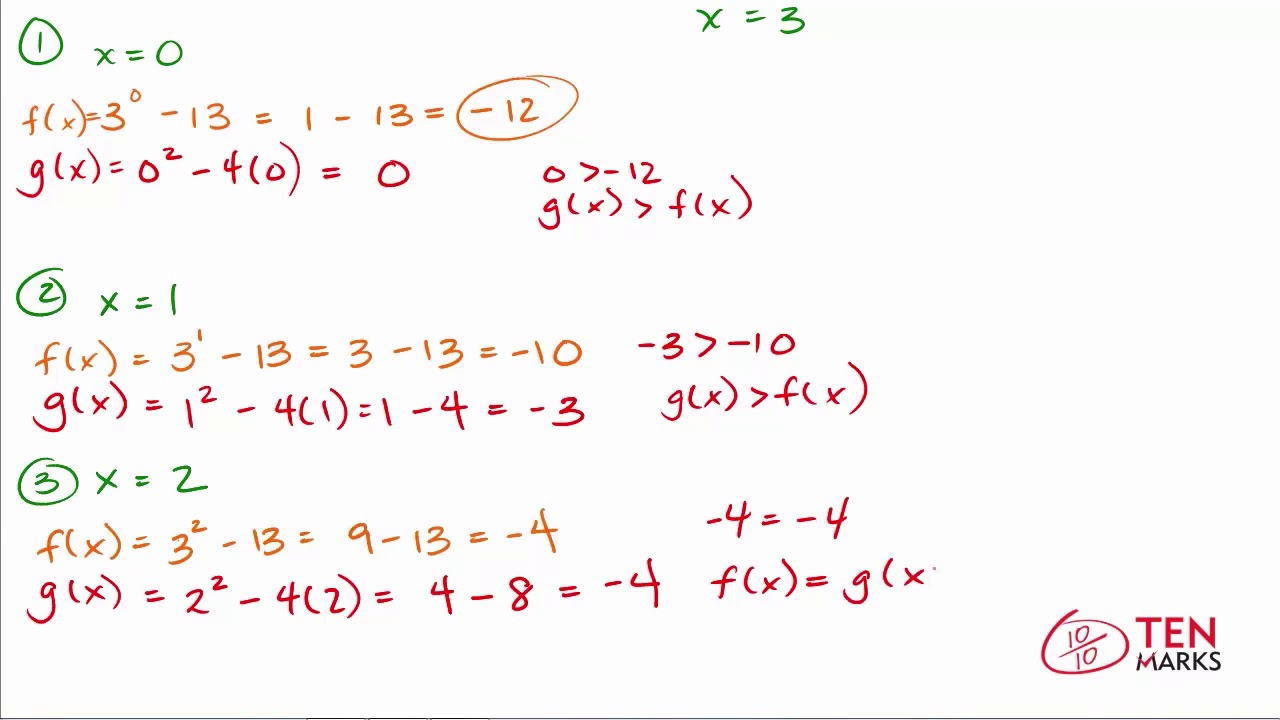 x = 3
① x = 0
f(x) = 3⁰ - 13 = 1 - 13 = -12
g(x) = 0² - 4(0) = 0
0 > -12
g(x) > f(x)
② x = 1
f(x) = 3¹ - 13 = 3 - 13 = -10
-3 > -10
g(x) = 1² - 4(1) = 1 - 4 = -3
g(x) > f(x)
③ x = 2
f(x) = 3² - 13 = 9 - 13 = -4
-4 = -4
g(x) = 2² - 4(2) = 4 - 8 = -4
f(x) = g(x
10/10 TEN
MARKS